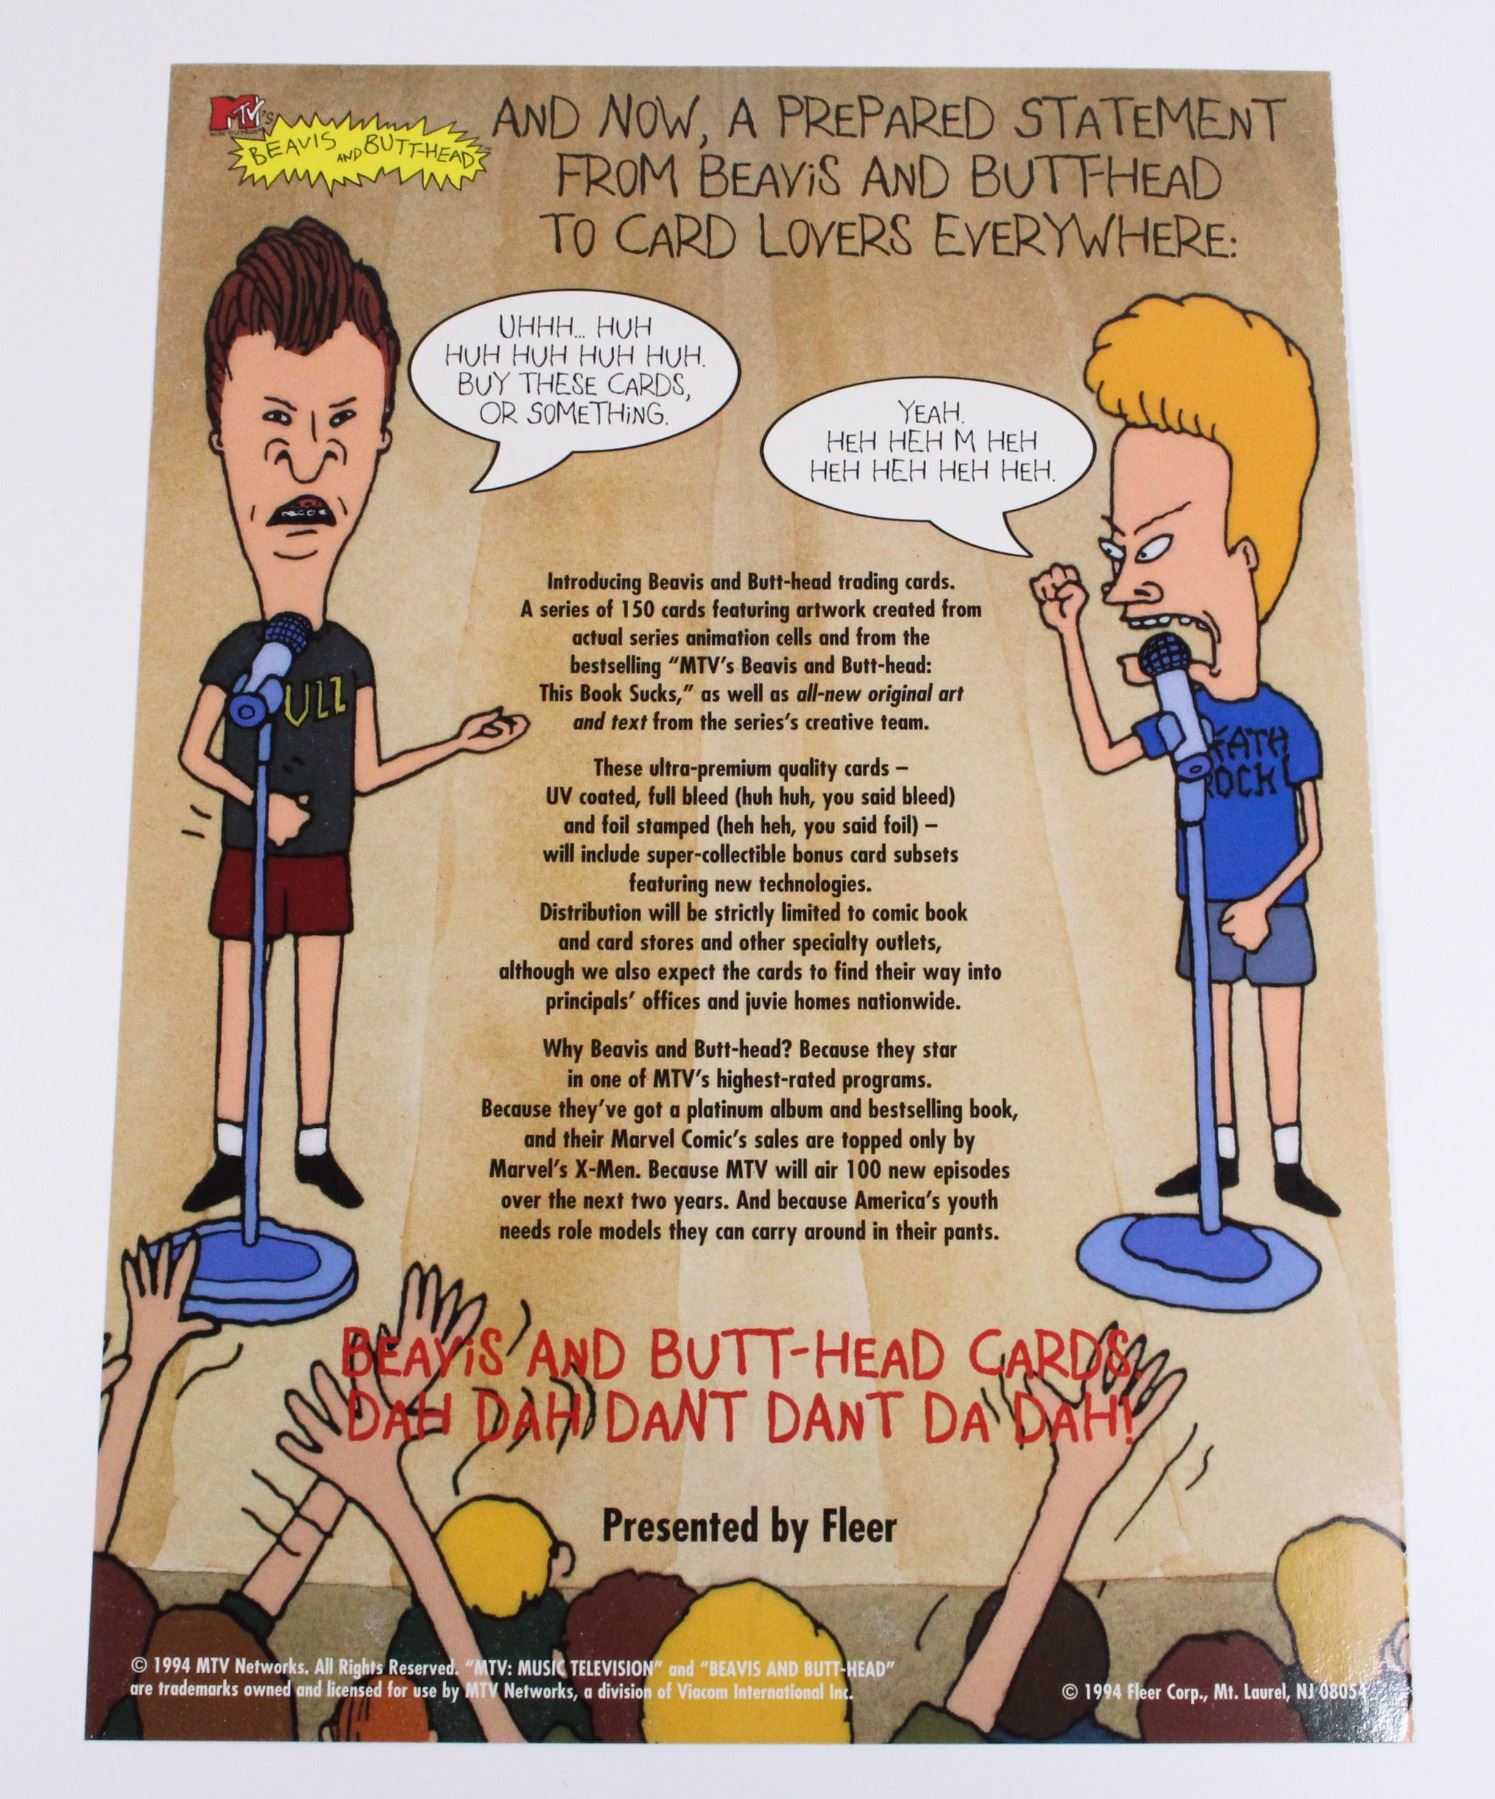 MTV's
BEAVIS AND BUTT-HEAD
AND NOW, A PREPARED STATEMENT
FROM BEAViS AND BUTT-HEAD
TO CARD LOVERS EVERYWHERE:
UHHH... HUH
HUH HUH HUH HUH.
BUY THESE CARDS,
OR SOMETHiNG.
YEAH.
HEH HEH M HEH
HEH HEH HEH HEH.
ULL
EATH
ROCK!
Introducing Beavis and Butt-head trading cards.
A series of 150 cards featuring artwork created from
actual series animation cells and from the
bestselling “MTV’s Beavis and Butt-head:
This Book Sucks,” as well as all-new original art
and text from the series’s creative team.
These ultra-premium quality cards –
UV coated, full bleed (huh huh, you said bleed)
and foil stamped (heh heh, you said foil) –
will include super-collectible bonus card subsets
featuring new technologies.
Distribution will be strictly limited to comic book
and card stores and other specialty outlets,
although we also expect the cards to find their way into
principals’ offices and juvie homes nationwide.
Why Beavis and Butt-head? Because they star
in one of MTV’s highest-rated programs.
Because they’ve got a platinum album and bestselling book,
and their Marvel Comic’s sales are topped only by
Marvel’s X-Men. Because MTV will air 100 new episodes
over the next two years. And because America’s youth
needs role models they can carry around in their pants.
BEAViS AND BUTT-HEAD CARDS.
DAH DAH DANT DANT DA DAH!
Presented by Fleer
© 1994 MTV Networks. All Rights Reserved. “MTV: MUSIC TELEVISION” and “BEAVIS AND BUTT-HEAD”
are trademarks owned and licensed for use by MTV Networks, a division of Viacom International Inc.
© 1994 Fleer Corp., Mt. Laurel, NJ 08054